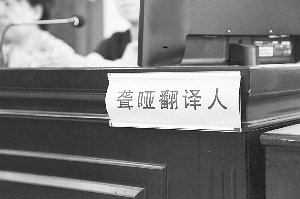 聋哑翻译人